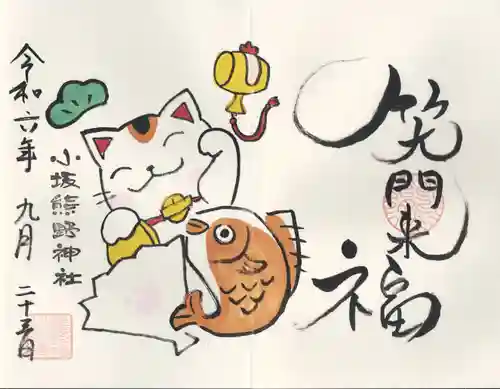 笑門来福
小坂熊野神社
令和六年 九月 二十五日